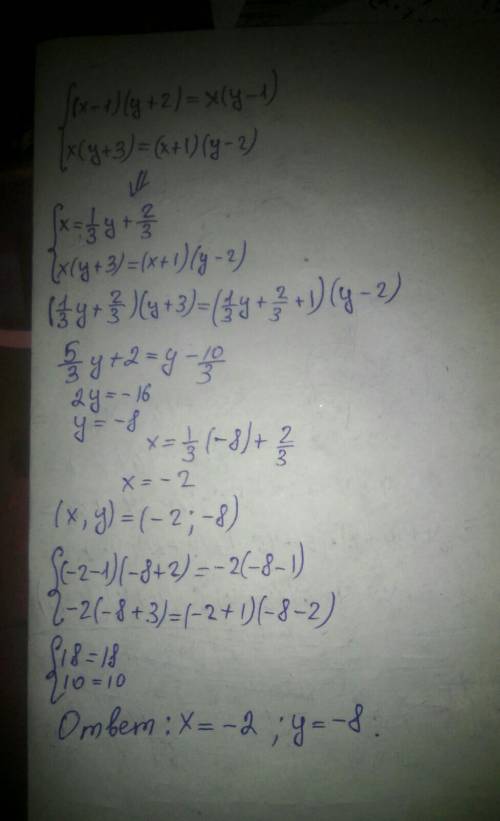 {(x-1)(y+2)=x(y-1)
{x(y+3)=(x+1)(y-2)
⇓
{x=1/3y+2/3
{x(y+3)=(x+1)(y-2)
(1/3y+2/3)(y+3)=(1/3y+2/3+1)(y-2)
5/3y+2=y-10/3
2y=-16
y=-8
x=1/3(-8)+2/3
x=-2
(x,y)=(-2;-8)
{(-2-1)(-8+2)=-2(-8-1)
{-2(-8+3)=(-2+1)(-8-2)
{18=18
{10=10
Ответ: x=-2; y=-8.